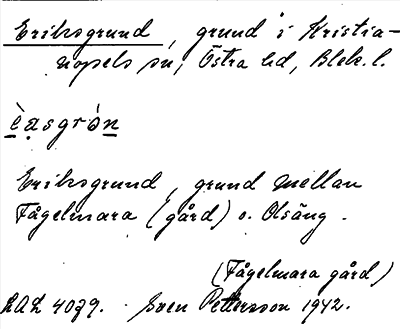 Eriksgrund, grund i Kristia-
nopels sn, Östra hd, Blek. l.
èạsgrón
Eriksgrund, grund mellan
Fågelmara (gård) o. Olsäng.
(Fågelmara gård)
LAL 4079. Sven Pettersson 1942.